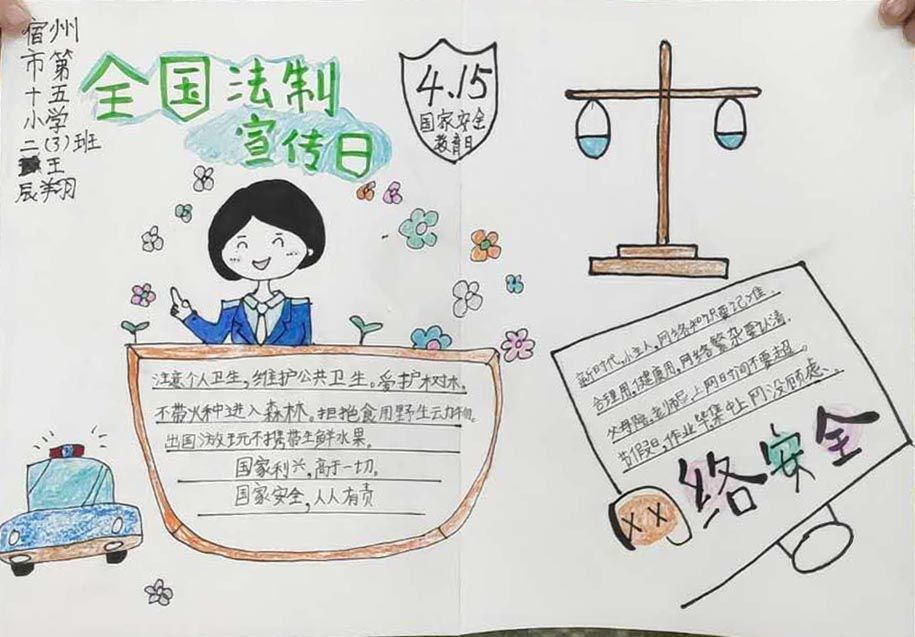 宿州
市第
十五
小学
二(3)班
王
辰翔
全国法制
宣传日
4.15
国家安全
教育日
注意个人卫生,维护公共卫生。爱护树木,
不带火种进入森林。拒绝食用野生动物。
出国游玩不携带生鲜水果。
国家利兴,高于一切。
国家安全,人人有责
新时代,小主人,网络知识要记准。
合理用,健康用,网络繁杂要认清。
父母陪,老师乐,上网时间不要超。
节假日,作业毕,集中上网没顾虑。
络安全